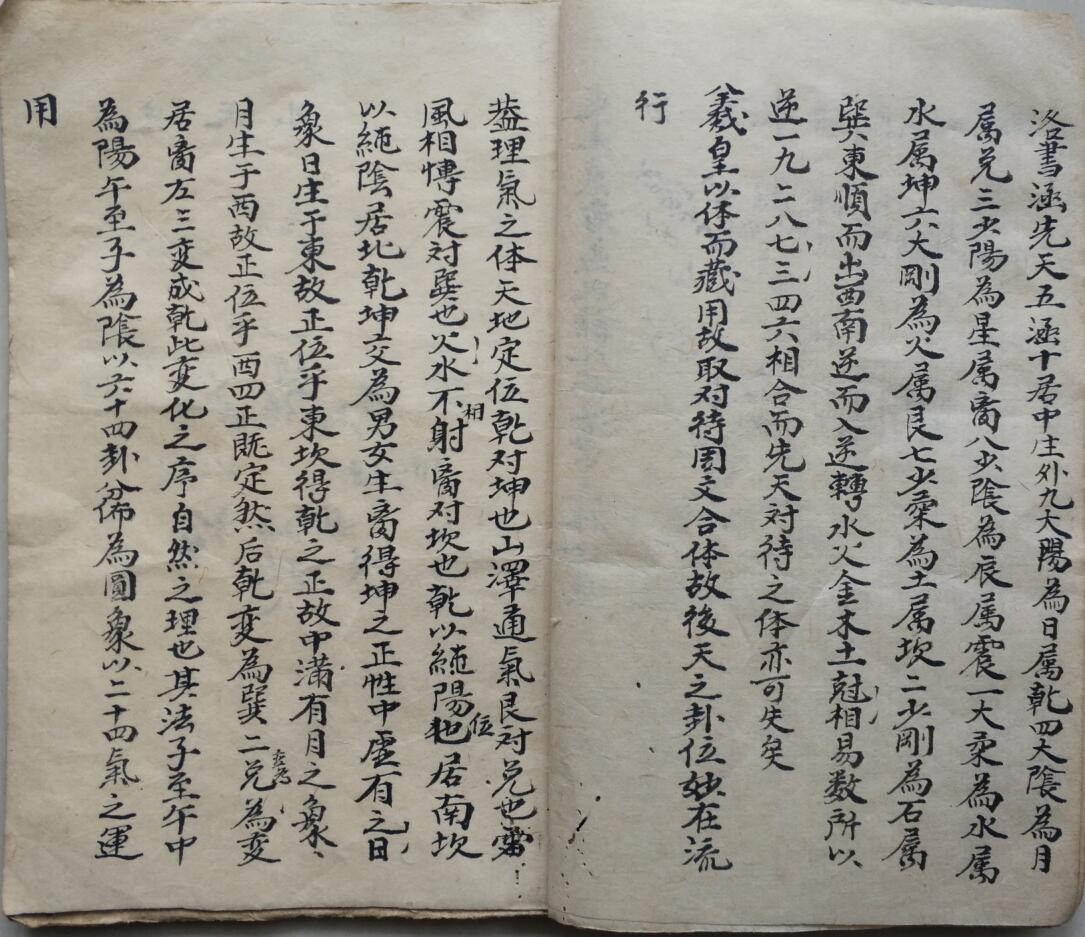 洛書涵先天五涵十居中庄外九大陽為日属乾四大陰為月
属兑三少陽為星属离八少陰為辰属震一大柔為水属
水属坤六大剛為火属艮七少柔為土属坎二少剛為石属
巽東順而出西南逆而入逆轉水火金木土尅相易数所以
逆一九二八七三四六相合而先天对待之体亦可失矣
羲皇以体而藏用故取对待周文合体故後天之卦位妙在流
行
盖理氣之体天地定位乾对坤也山澤通氣艮对兑也雷
風相愽震对巽也火水不相射离对坎也乾以純陽位居南坎
以純陰居北乾坤交為男女生离得坤之正性中虚有之日
象日生于東故正位乎東坎得乾之正故中满有月之象
月生于西故正位乎酉四正既定然后乾变為巽二兑為变
居离左三变成乾此变化之序自然之理也其法子至午中
為陽午至子為陰以六十四卦分佈為圓象以二十四氣之運
用